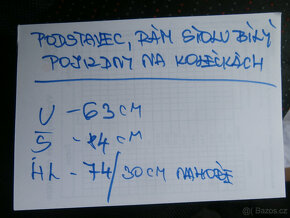 PODSTAVEC, RÁM STOLU BÍLÝ
POJIZDNÝ NA KOLEČKÁCH
V - 63 CM
Š - 84 CM
HL - 74/30CM NAHOŘE